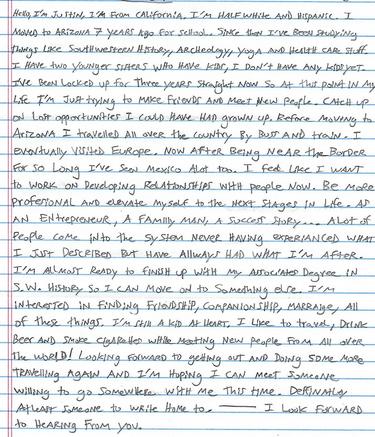 Hello, I'm Justin, I'm From California. I'm Half White and Hispanic. I
Moved to Arizona 7 years ago For school. Since then I've Been studying
things like Southwestern History, Archeology, yoga and Health care stuff.
I Have two younger sisters who Have kids, I Don't Have any kids yet.
I've Been locked up For Three years straight Now So At this point in My
life I'm Just trying to Make Friends and Meet New People. Catch up
on Lost opportunities I could Have Had grown up. Before Moving to
Arizona I travelled All over the country By Buss and train. I
eventually Visited Europe. Now After Being Near the Border
For so long I've Seen Mexico Alot too. I Feel like I want
to work on Developing Relationships with people Now. Be more
Profesional and elevate Myself to the Next Stages in Life. As
an Entrepreneur, A Family Man, a Success story... Alot of
People come into the System Never Having experianced what
I Just Described But Have Allways Had what I'm After.
I'm Allmost Ready to Finish up with My Associates Degree in
S.W. History So I can Move on to Something else. I'm
interested in Finding Friendship, Companionship, Marraige, All
of these things. I'm still a kid at Heart, I Like to travel, Drink
Beer and Smoke Cigarettes while Meeting New people From all over
The world! Looking Forward to getting out and Doing Some More
Travelling Again and I'm Hoping I can Meet Someone
willing to go Somewhere with Me This time. Definatly
Atleast Someone to write Home to. ——— I Look Forward
to Hearing From you.